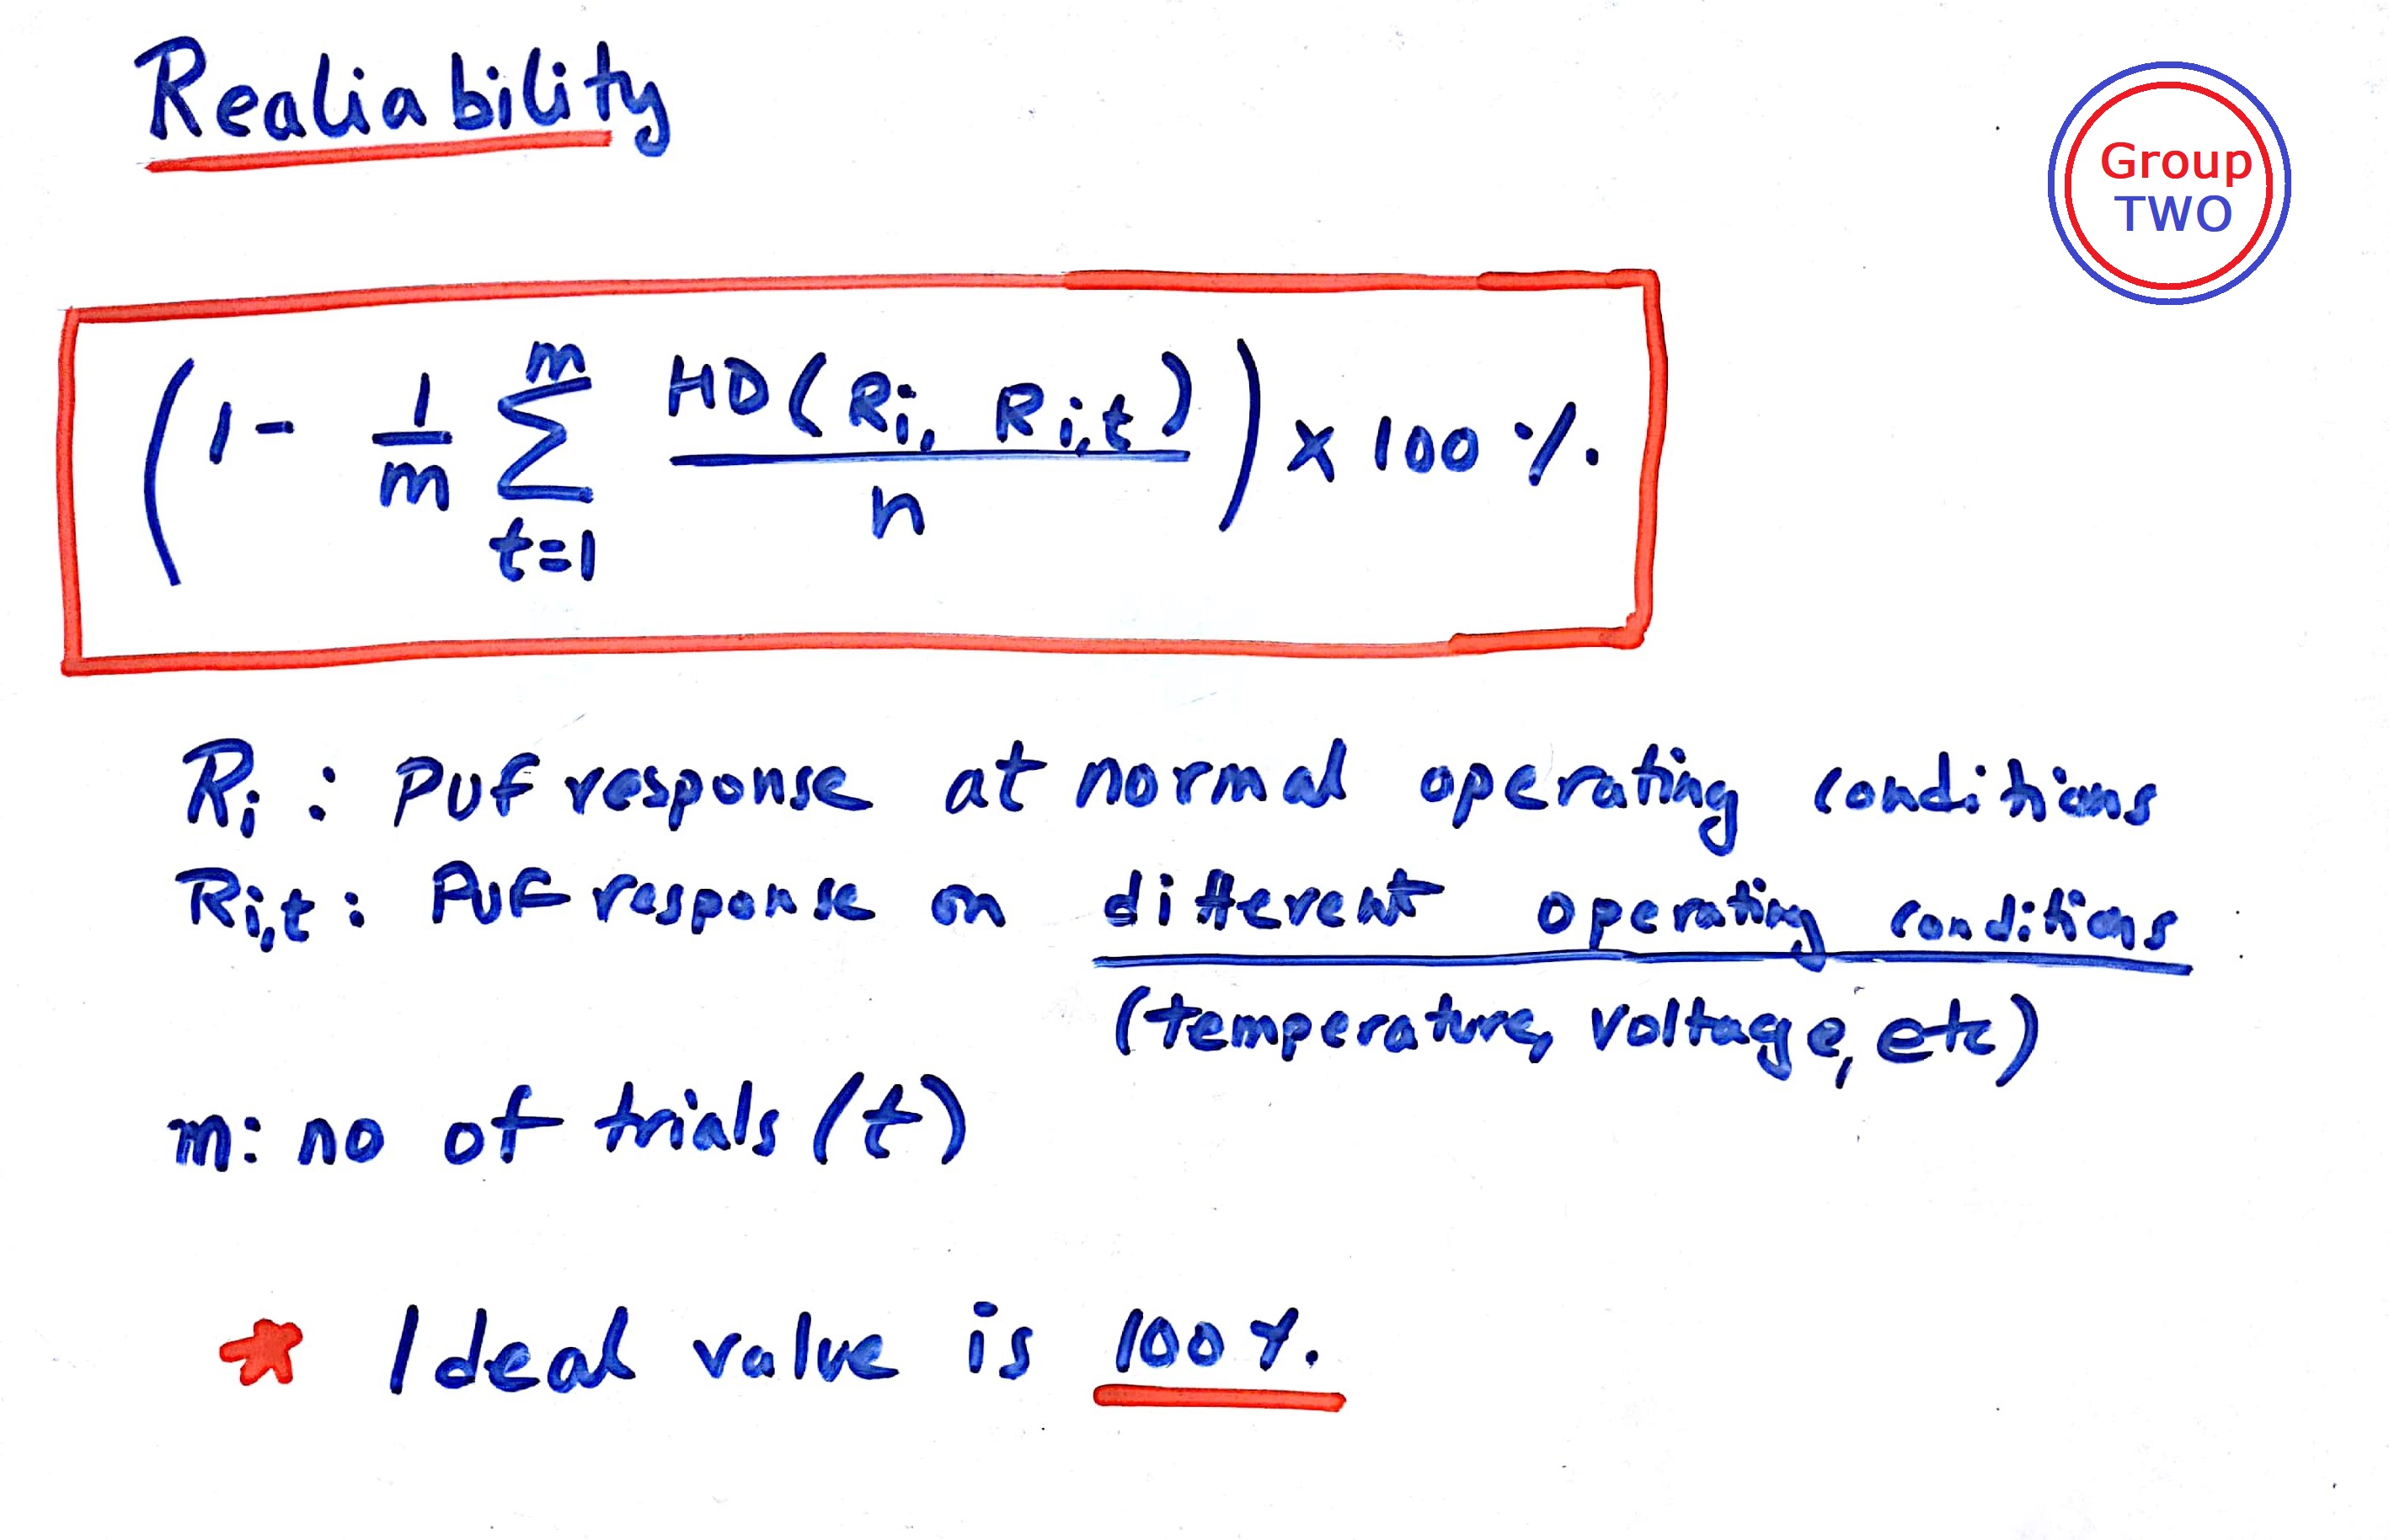 Realiability
Group
TWO
(1 - 1/m ∑_{t=1}^{m} HD(Ri, Ri,t)/n) x 100 %
Ri : PUF response at normal operating conditions
Ri,t : PUF response on different operating conditions
(temperature, voltage, etc)
m: no of trials (t)
* Ideal value is 100%